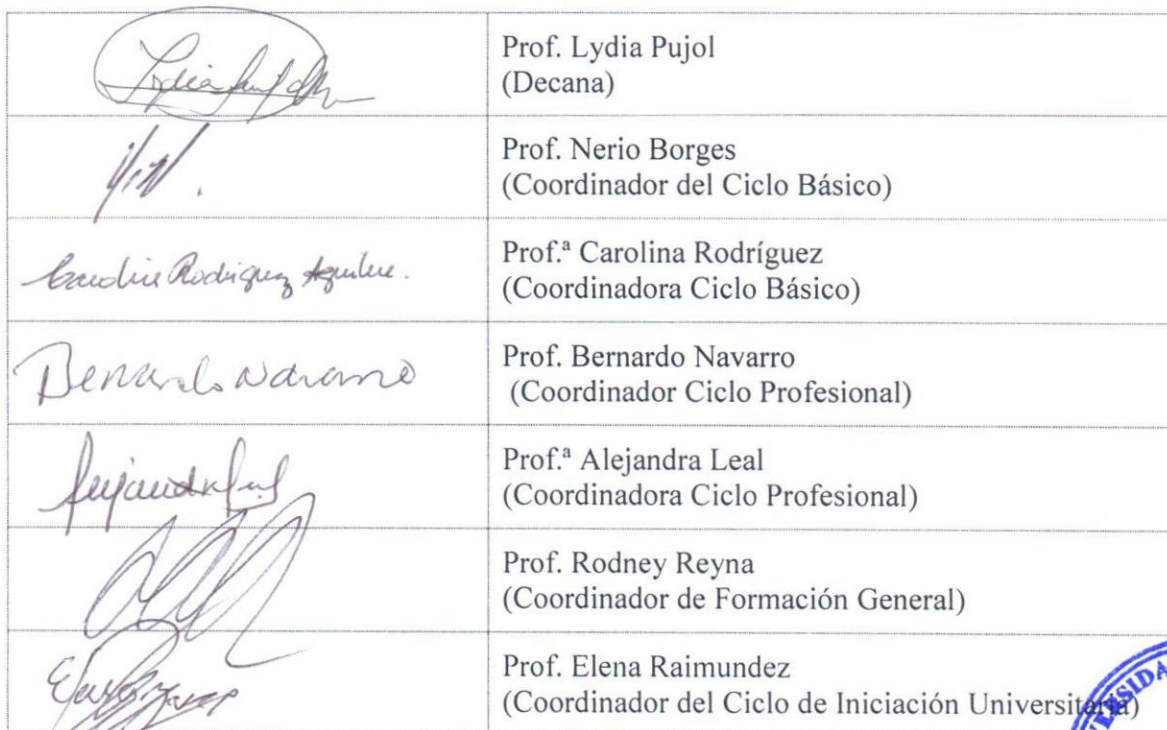 Prof. Lydia Pujol
(Decana)
Prof. Nerio Borges
(Coordinador del Ciclo Básico)
Carolina Rodriguez Aguilera.
Prof.ª Carolina Rodríguez
(Coordinadora Ciclo Básico)
Bernardo Navarro
Prof. Bernardo Navarro
(Coordinador Ciclo Profesional)
Prof.ª Alejandra Leal
(Coordinadora Ciclo Profesional)
Prof. Rodney Reyna
(Coordinador de Formación General)
Prof. Elena Raimundez
(Coordinador del Ciclo de Iniciación Universitaria)